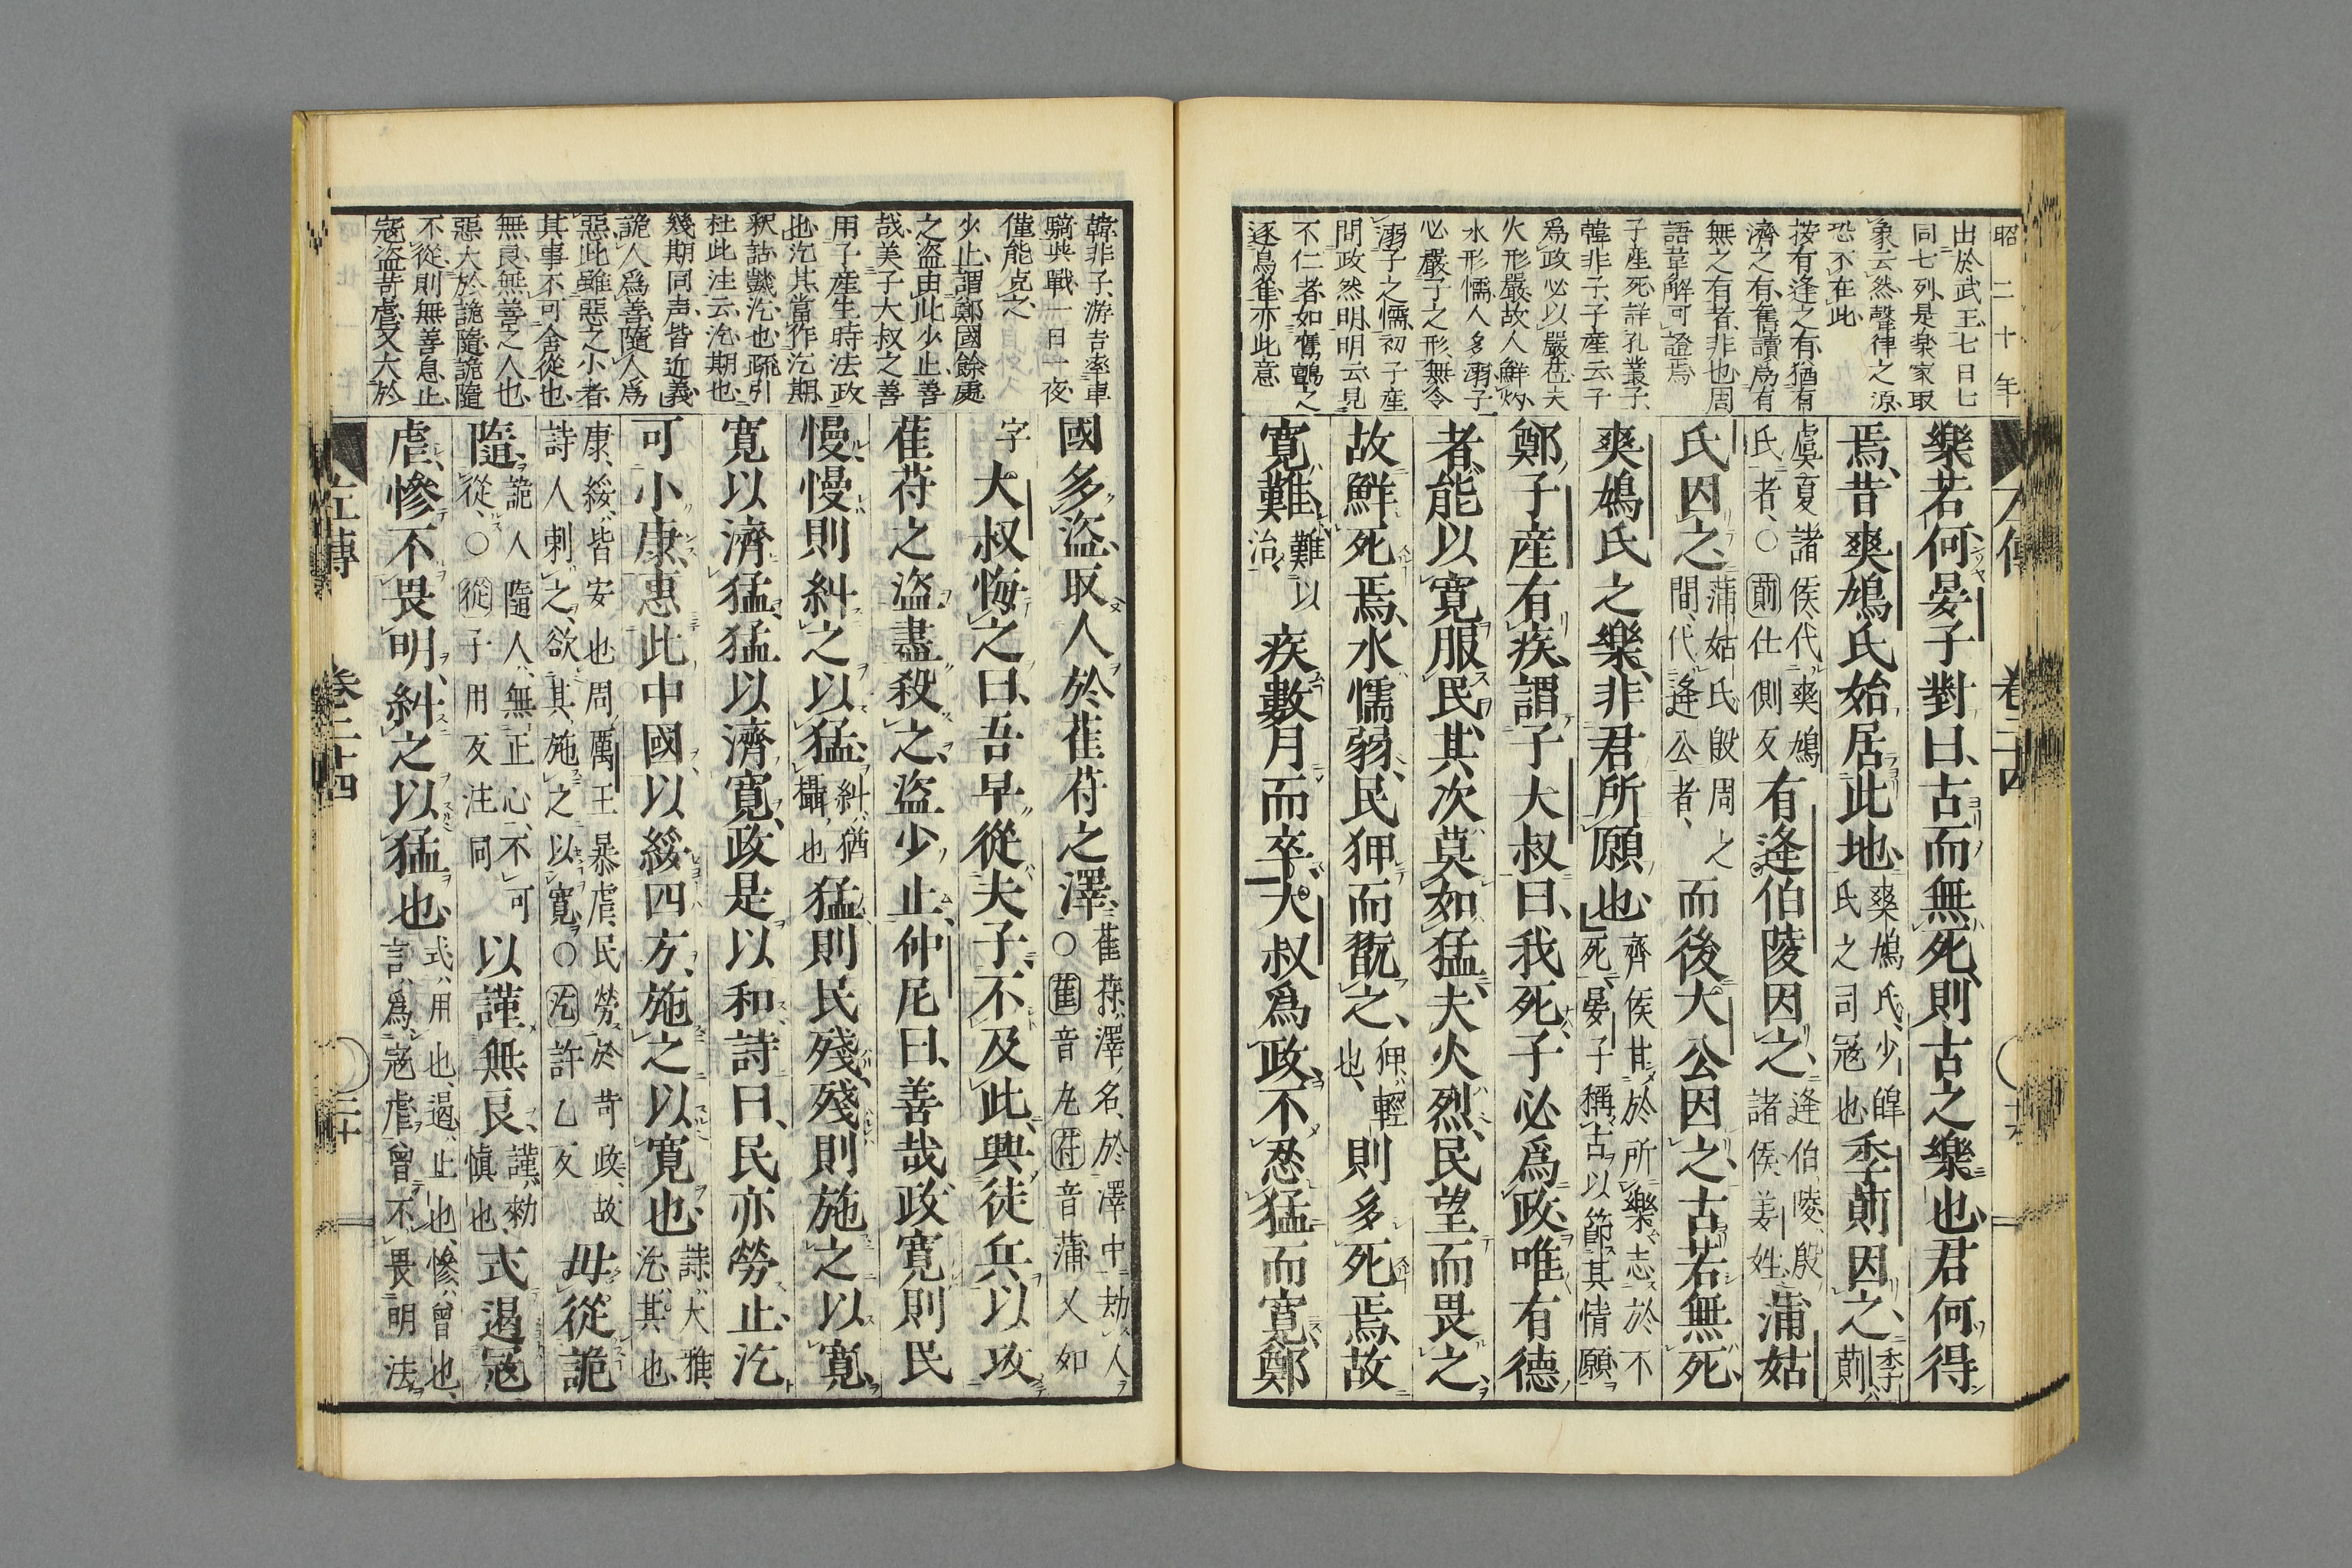 昭二十年
出於武王七日七
同七列是楽家取
象云然聲律之源
恐不在此
按有逢之有猶有
濟之有舊讀爲有
無之有者非也周
語韋解可證焉
子産死詳孔叢子
韓非子子産云子
爲政必以嚴莅夫
火形嚴故人鮮灼
水形懦人多溺子
必嚴子之形無令
溺子之懦初子産
問政然明明云見
不仁者如鷹鸇之
逐鳥雀亦此意
樂若何晏子對曰古而無死則古之樂也君何得
焉昔爽鳩氏始居此地爽鳩氏少皥氏之司冦也季萴因之季萴
虞夏諸侯代爽鳩氏者○萴仕側反有逢伯陵因之逢伯陵殷諸侯姜姓蒲姑
氏因之蒲姑氏殷周之間代逢公者而後大公因之古若無死
爽鳩氏之樂非君所願也齊侯甘於所樂志於不死晏子稱古以節其情願
鄭子産有疾謂子大叔曰我死子必爲政唯有德
者能以寛服民其次莫如猛夫火烈民望而畏之
故鮮死焉水懦弱民狎而翫之狎輕也則多死焉故
寛難難以治疾數月而卒大叔爲政不忍猛而寛鄭
韓非子游吉率車
騎與戰一日一夜
僅能克之
少止謂鄭國餘處
之盜由此少止善
哉美子大叔之善
用子産生時法政
也汔其當作汔期
釈詁譏汔也疏引
杜此注云汔期也
幾期同声皆近義
詭人爲善隨人爲
惡此雖惡之小者
其事不可舍從也
無良無善之人也
惡大於詭隨詭隨
不從則無善息止
冦盜苛虐又大於
國多盜取人於萑苻之澤萑苻澤名於澤中劫人○萑音丸苻音蒲又如
字大叔悔之曰吾早從夫子不及此興徒兵以攻
萑苻之盜盡殺之盜少止仲尼曰善哉政寛則民
慢慢則糾之以猛糾猶攝也猛則民殘殘則施之以寛
寛以濟猛猛以濟寛政是以和詩曰民亦勞止汔
可小康惠此中國以綏四方施之以寛也詩大雅汔其也
康綏皆安也周厲王暴虐民勞於苛政故詩人刺之欲其施之以寛○汔許乙反毋從詭
隨詭人隨人無正心不可從○從子用反注同以謹無良謹勑慎也式遏冦
虐慘不畏明糾之以猛也式用也遏止也慘曾也言爲冦虐曾不畏明法
左傳
卷二十四
二十